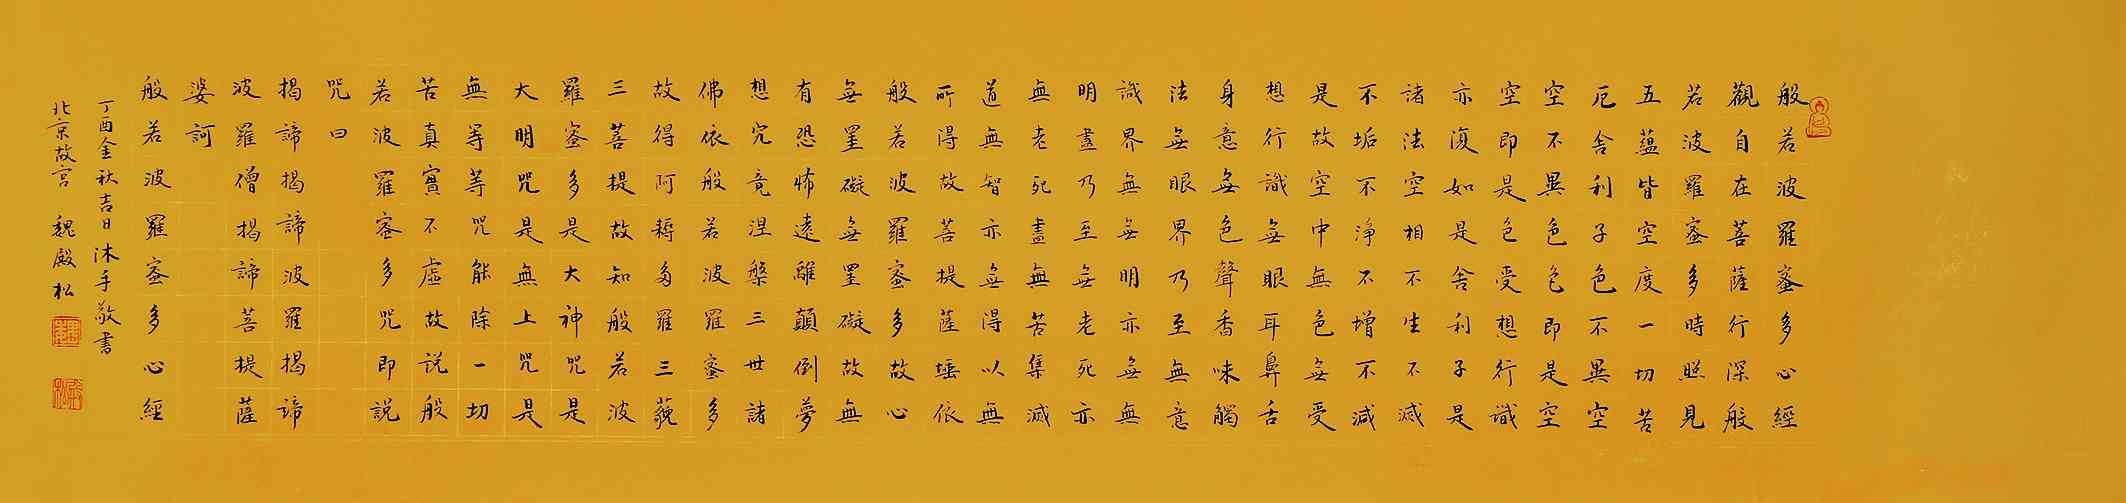 般若波羅蜜多心經
觀自在菩薩行深般
若波羅蜜多時照見
五蘊皆空度一切苦
厄舍利子色不異空
空不異色色即是空
空即是色受想行識
亦復如是舍利子是
諸法空相不生不滅
不垢不淨不增不減
是故空中無色無受
想行識無眼耳鼻舌
身意無色聲香味觸
法無眼界乃至無意
識界無無明亦無無
明盡乃至無老死亦
無老死盡無苦集滅
道無智亦無得以無
所得故菩提薩埵依
般若波羅蜜多故心
無罣礙無罣礙故無
有恐怖遠離顛倒夢
想究竟涅槃三世諸
佛依般若波羅蜜多
故得阿耨多羅三藐
三菩提故知般若波
羅蜜多是大神咒是
大明咒是無上咒是
無等等咒能除一切
苦真實不虛故説般
若波羅蜜多咒即説
咒曰
揭諦揭諦波羅揭諦
波羅僧揭諦菩提薩
婆訶
般若波羅蜜多心經
丁酉金秋吉日沐手敬書
北京故宮 魏殿松